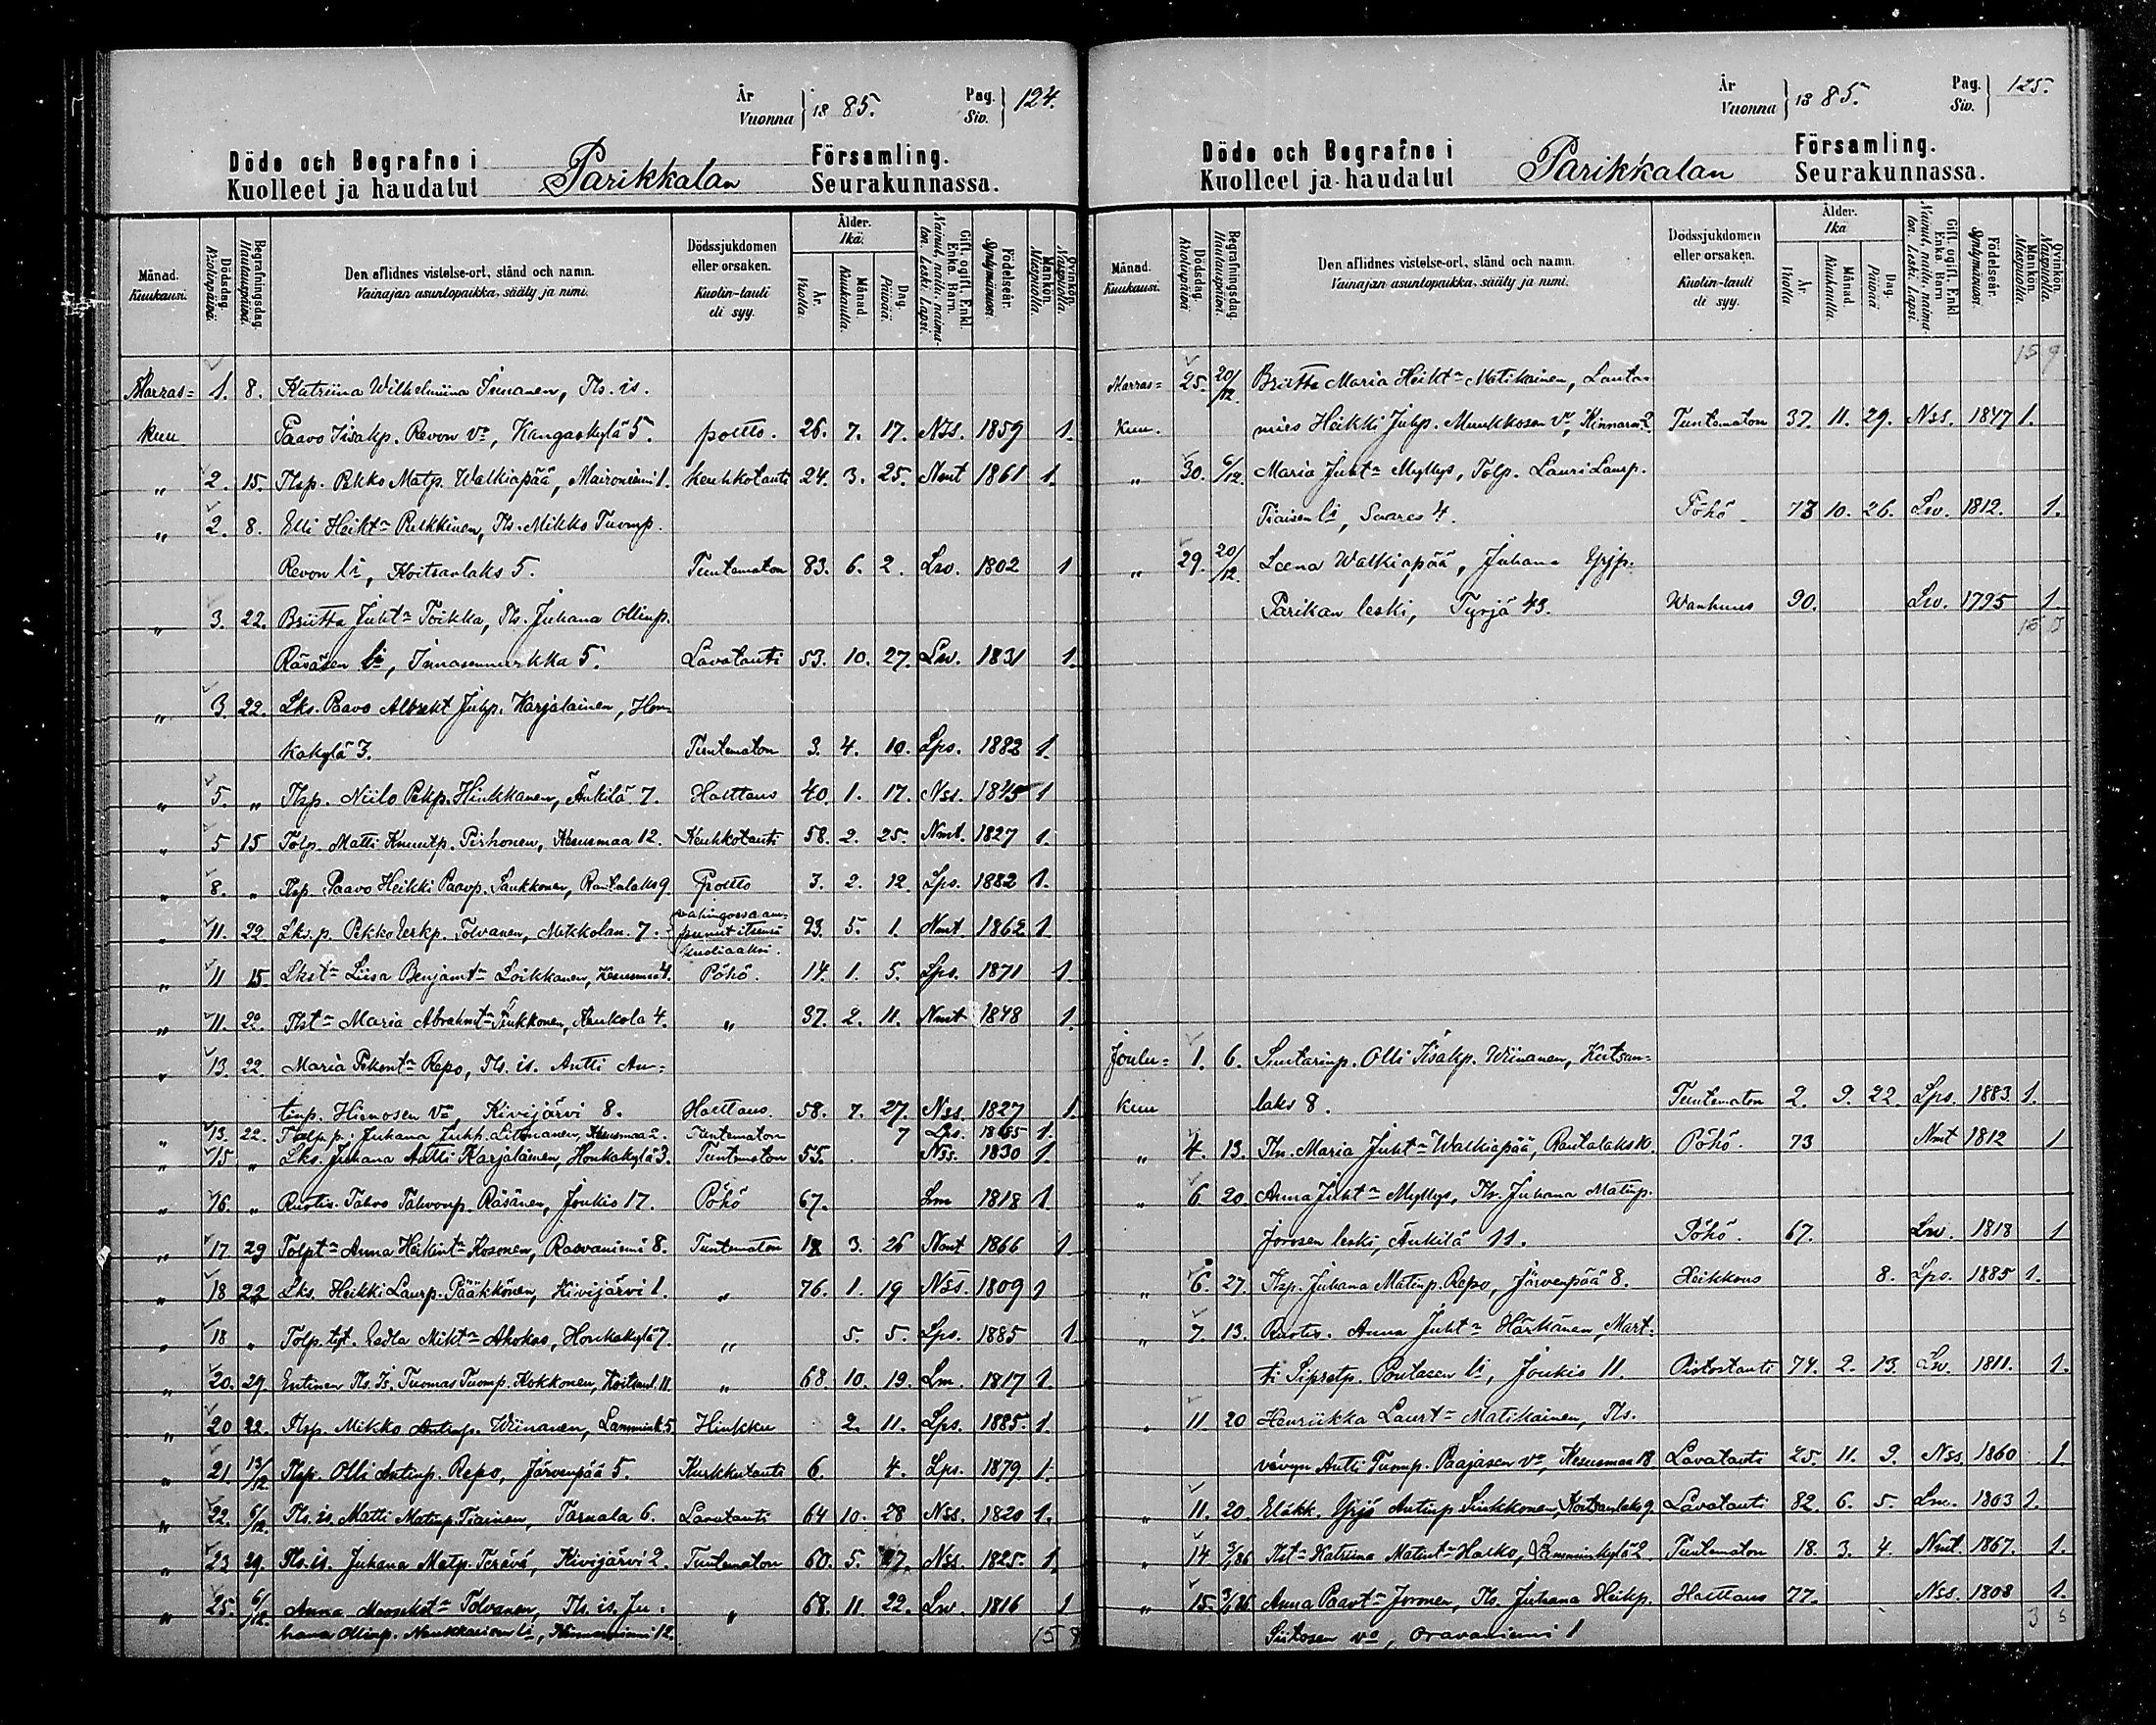 År
Vuonna } 18 85. Pag.
Siv. } 124.
Döde och Begrafne i Parikkalan Församling.
Kuolleet ja haudatut Seurakunnassa.
Månad. Kuukausi. Dödsdag. Kuolinpäivä. Begrafningsdag. Hautauspäivä. Den aflidnes vistelse-ort, stånd och namn. Vainajan asuntopaikka, sääty ja nimi. Dödssjukdomen eller orsaken. Kuolin-tauti eli syy. Ålder. Ikä. År. Vuotta. Månad. Kuukautta. Dag. Päivää. Gift, ogift, Enkl. Enka. Barn. Nainut, naitu, naimaton. Leski. Lapsi. Födelseår. Syntymävuosi. Mankön. Miespuolia. Qvinkön. Naispuolia.
Marras= 1. 8. Katriina Wilhelmiina Imanen, Tls. is.
kuu Paavo Iisakp. Revon vo, Kangaskylä 5. poltto. 26. 7. 17. Nss. 1859 1.
" 2. 15. Tlsp. Pekko Matp. Walkiapää, Maironiemi 1. keuhkotauti 24. 3. 25. Nmt 1861 1.
" 2. 8. Elli Heikt. Pulkkinen, Tls. Mikko Tuomp.
Revon li, Koitsanlaks 5. Tuntematon 83. 6. 2. Lsv. 1802 1
" 3. 22. Briitta Juht. Toikka, Tls. Juhana Ollinp.
Räsäsen li, Innasenmurkka 5. Lavatauti 53. 10. 27. Lsv. 1831 1.
" 3. 22. Lks. Paavo Albrekt Juhp. Karjalainen, Hon=
kakylä 3. Tuntematon 3. 4. 10. Lps. 1882 1.
" 5. " Tlsp. Niilo Pekp. Hinkkanen, Änkilä 7. Halttaus 40. 1. 17. Nss. 1845 1
" 5 15 Tolp. Matti Knuutp. Pirhonen, Kesusmaa 12. Keuhkotauti 58. 2. 25. Nmt. 1827 1.
" 8. " Tlsp. Paavo Heikki Paavp. Sankkonen, Rautalaks 9. Poltto 3. 2. 12 Lps. 1882 1.
" 11. 22 Lks. p. Pekko Eerkp. Tolvanen, Mikkolan. 7. vahingossa am=
punut itsensä
kuoliaaksi. 23. 5. 1. Nmt. 1862 1.
" 11 15. Lkst. Liisa Benjamt. Loikkanen, Kesusmaa 4. Pöhö. 14. 1. 5. Lps. 1871 1.
" 11. 22. Tlst. Maria Abrahmt. Sinkkonen, Kaukola 4. " 37. 2. 11. Nmt 1848 1.
" 13. 22. Maria Pekont. Repo, Tls. is. Antti An=
tinp. Hienosen vo Kivijärvi 8. Halttaus. 58. 7. 27. Nss. 1827 1
" 13. 22. Tolp. p. Juhana Juhp. Litmanen, Kesusmaa 2. Tuntematon 7 Lps. 1885 1.
" 15 " Lks. Juhana Antti Karjalainen, Honkakylä 3. Tuntematon 55. Nss. 1830 1.
" 16. " Ruotis. Tahvo Tahvonp. Räsänen, Joukio 17. Pöhö 67. Lm 1818 1
" 17 29 Tolpt. Anna Heikint. Kosonen, Rasvaniemi 8. Tuntematon 18 3. 26 Nmt 1866 1
" 18 22 Lks. Heikki Laurp. Pääkkönen, Kivijärvi 1. " 76. 1. 19 Nss. 1809 1
" 18 " Tolp. tyt. Eedla Mikt. Akokas, Honkakylä 7. " 5. 5. Lps. 1885 1
" 20. 29. Entinen Tls. Is. Tuomas Tuomp. Kokkonen, Koitsanl. 11. " 68. 10. 19. Lm. 1817 1.
" 20 22. Tlsp. Mikko Antinp. Wiinanen, Lammink. 5 Hinkku 2. 11. Lps. 1885. 1.
" 21. 13/12 Tlsp. Olli Antinp. Repo, Järvenpää 5. Kurkkutauti 6. 4. Lps. 1879 1.
" 22. 6/12. Tls. is. Matti Matinp. Tiainen, Tarnala 6. Lavatauti 64 10. 28 Nss. 1820 1.
" 23 29. Tls. is. Juhana Matp. Terävä, Kivijärvi 2. Tuntematon 60. 5. 27. Nss. 1825. 1.
" 25. 6/12. Anna Tolvanen, Tls. is. Ju=
hana Ollinp. li, 12. " 68. 11. 22. Lsv. 1816 1
15 9
År
Vuonna } 18 85. Pag.
Siv. } 125.
Döde och Begrafne i Parikkalan Församling.
Kuolleet ja haudatut Seurakunnassa.
Månad. Kuukausi. Dödsdag. Kuolinpäivä. Begrafningsdag. Hautauspäivä. Den aflidnes vistelse-ort, stånd och namn. Vainajan asuntopaikka, sääty ja nimi. Dödssjukdomen eller orsaken. Kuolin-tauti eli syy. Ålder. Ikä. År. Vuotta. Månad. Kuukautta. Dag. Päivää. Gift, ogift, Enkl. Enka. Barn. Nainut, naitu, naimaton. Leski. Lapsi. Födelseår. Syntymävuosi. Mankön. Miespuolia. Qvinkön. Naispuolia.
15 9
Marras= 25. 20/12. Briitta Maria Heikt. Matikainen, Lauta=
kuu. mies Heikki Juhp. Munkkosen vo, Kinnarn. 2. Tuntematon 37. 11. 29. Nss. 1847 1.
" 30. 6/12. Maria Juht. Myllys, Tolp. Lauri Laurp.
Tiaisen li, Saares 4. Pöhö 73 10. 26. Lsv. 1812. 1.
" 29. 20/12. Leena Walkiapää, Juhana Yrjp.
Parikan leski, Tyrjä 43. Wanhuus 90. Lsv. 1795 1.
Joulu= 1. 6. Suutarinp. Olli Iisakp. Wiinanen, Koitsan=
kuu laks 8. Tuntematon 2. 9. 22. Lps. 1883 1.
" 4. 13. Tln. Maria Juht. Walkiapää, Rautalaks 10. Pöhö. 73 Nmt 1812 1
" 6 20 Anna Juht. Myllys, Tls. Juhana Matinp.
Jorosen leski, Änkilä 11. Pöhö. 67. Lsv. 1818 1
" 6. 27. Tlsp. Juhana Matinp. Repo, Järvenpää 8. Heikkous 8. Lps. 1885 1.
" 7. 13. Ruotis. Anna Juht. Härkänen, Mart=
ti Sipretp. Poutasen li, Joukio 11. Pistostauti 74. 2. 13. Lsv. 1811. 1.
" 11. 20 Henriikka Laurt. Matikainen, Tls.
vävyn Antti Tuomp. Paajasen vo, Kesusmaa 18 Lavatauti 25. 11. 9. Nss. 1860 1.
" 11. 20. Eläkk. Yrjö Antinp. Sinkkonen, Koitsanlaks 9. Lavatauti 82. 6. 5. Lm. 1803 1.
" 14 3/1 86 Tlst. Katriina Matint. Halko, Lamminkylä 2 Tuntematon 18. 3. 4. Nmt. 1867. 1.
" 15. 3/1 86 Anna Paavt. Joronen, Tls. Juhana Heikp. Halttaus 77. Nss. 1808 1.
Siitosen vo, Oravaniemi 1
3 6